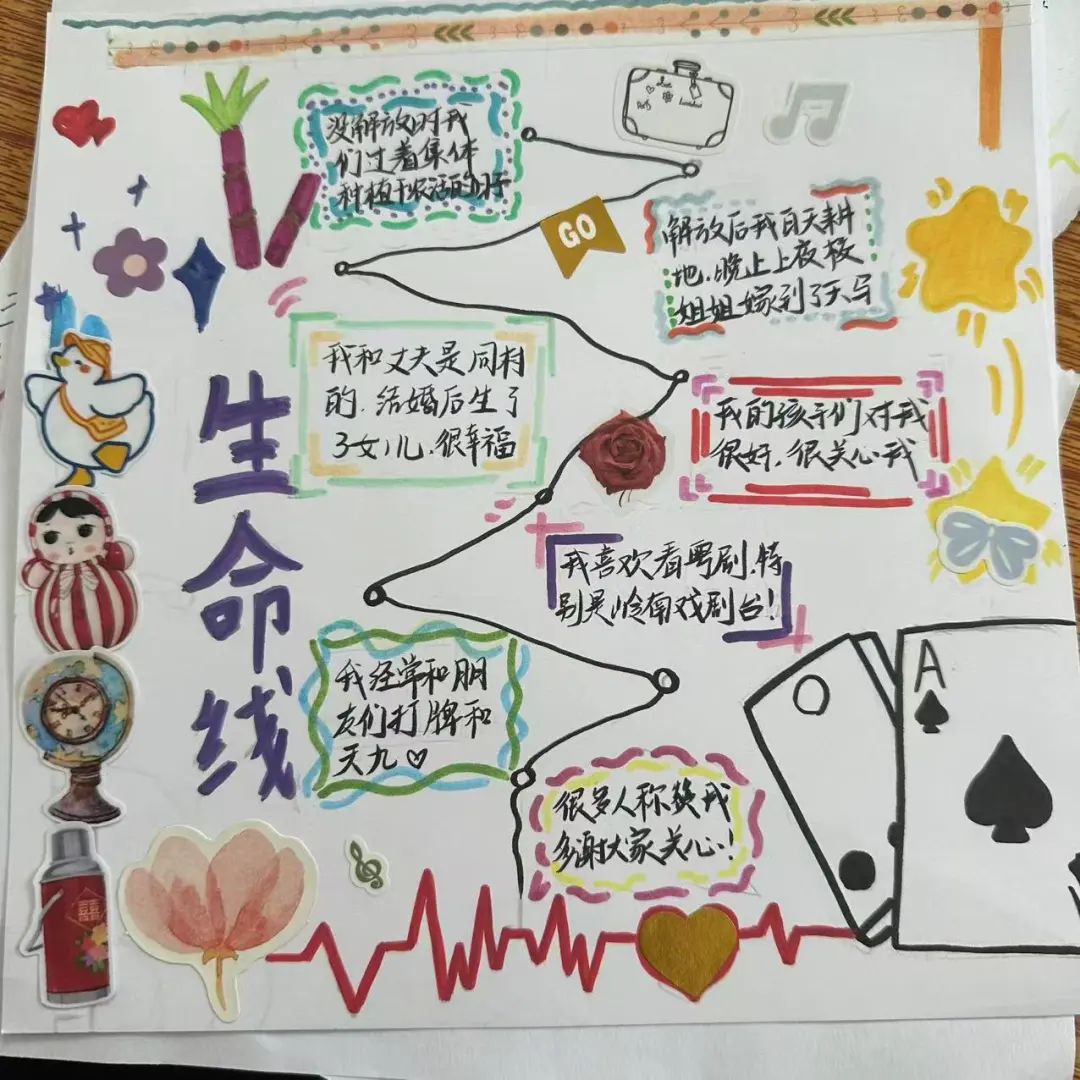 没解放时我
们过着集体
种植干农活的日子
GO
解放后我白天耕
地,晚上上夜校
姐姐嫁到了天马
生命线
我和丈夫是同村
的,结婚后生了
3女儿,很幸福
我的孩子们对我
很好,很关心我
我喜欢看粤剧,特
别是岭南戏剧台!
我经常和朋
友们打牌和
天九♡
A
很多人称赞我
多谢大家关心!
囍